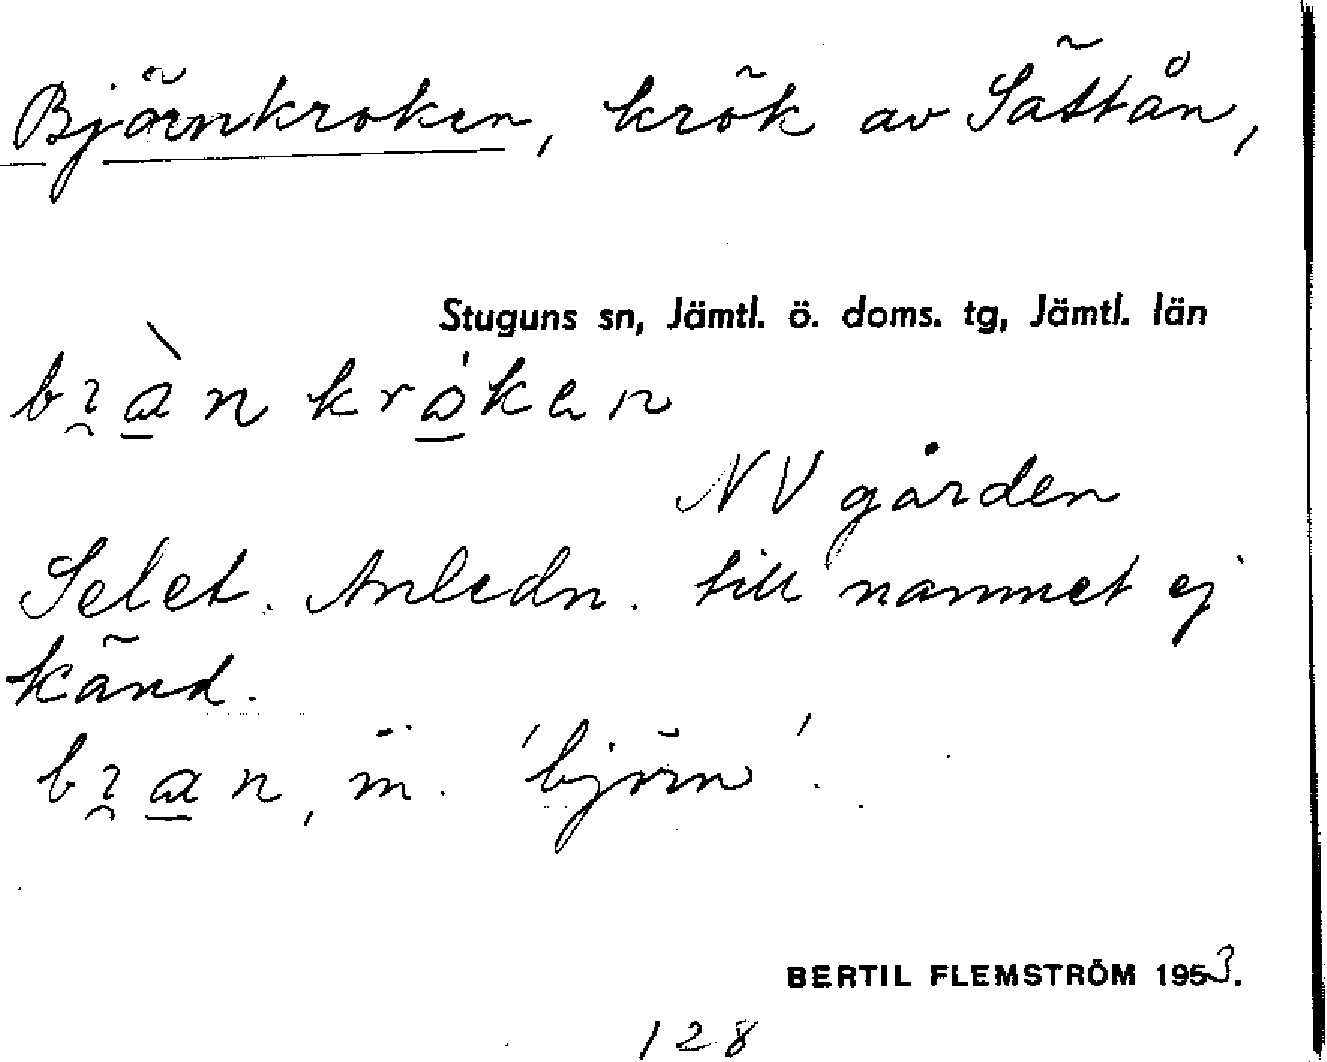 Björnkroken, krök av Sättån,
Stuguns sn, Jämtl. ö. doms. tg, Jämtl. län
NV gården
Selet. Anledn. till namnet ej
känd.
m. 'björn'.
BERTIL FLEMSTRÖM 1953.
128